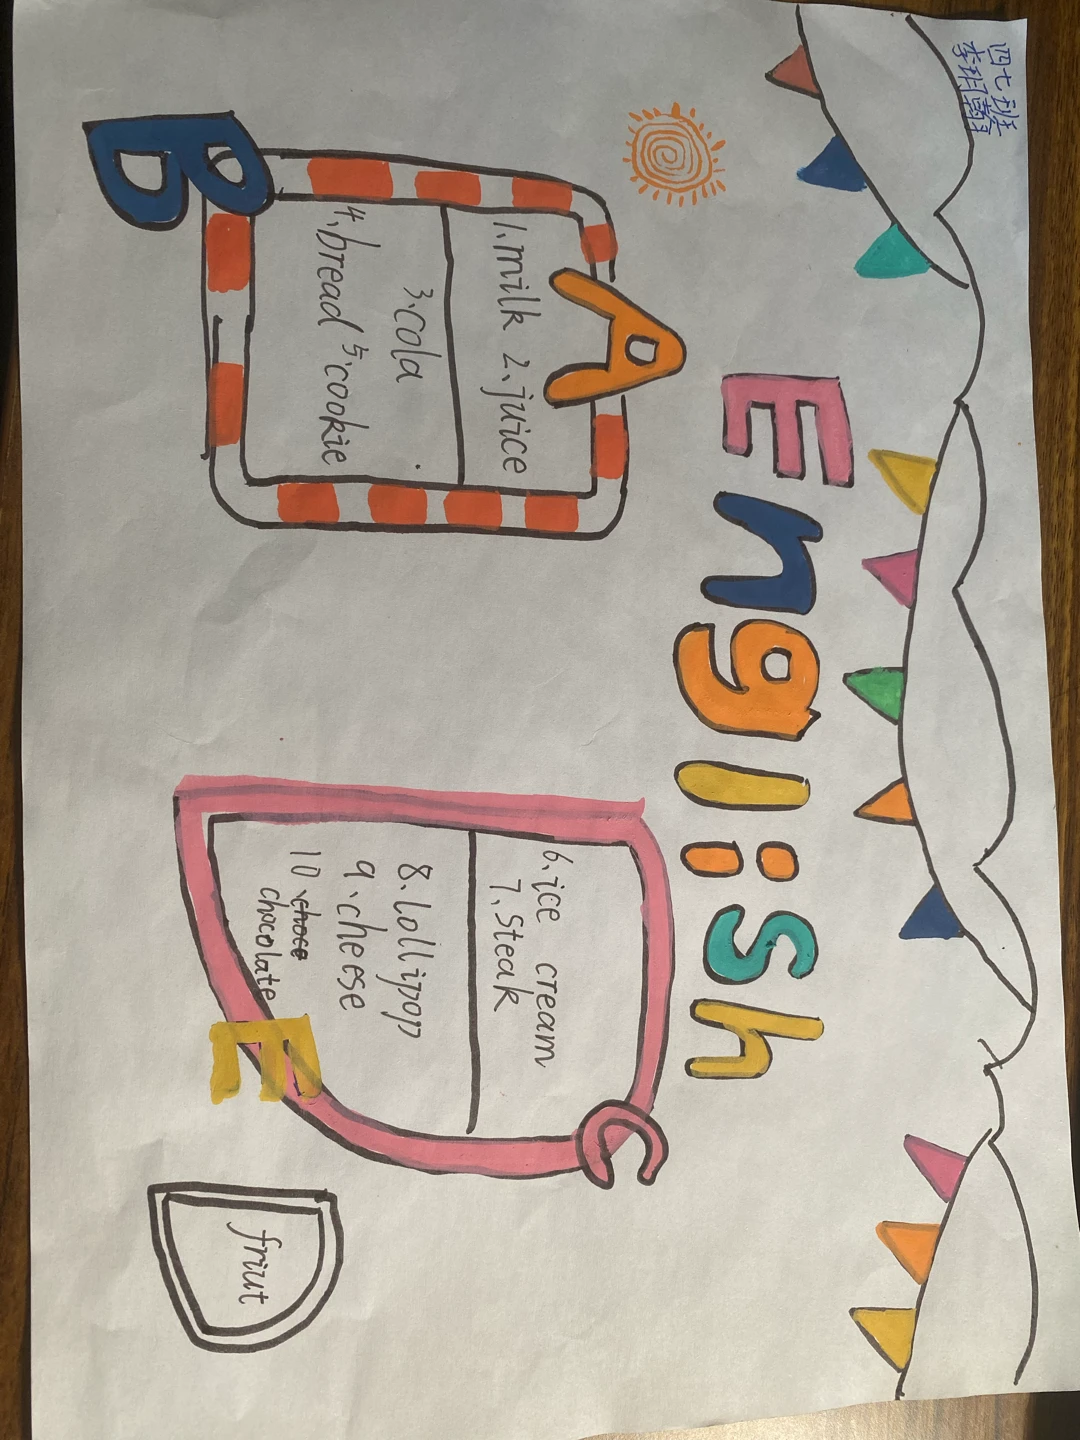 四七班
English
A
1.milk 2.juice
3.cola
4.bread 5.cookie
B
C
6.ice cream
7.steak
8.lollipop
9.cheese
10.choce
chocolate
E
friut